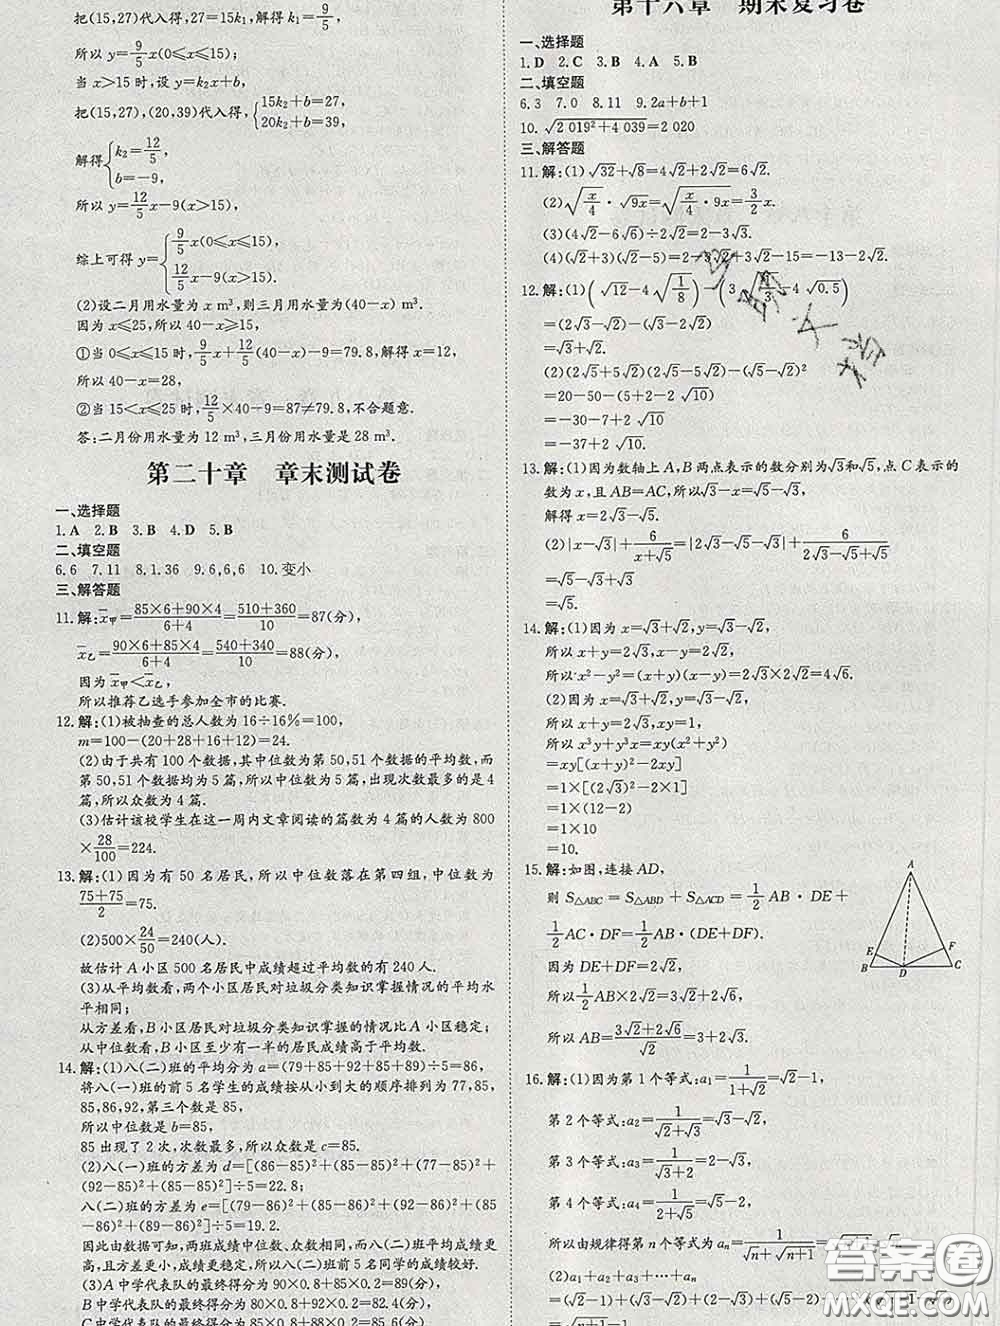 把(15,27)代入得,27=15k₁,解得 k₁=9/5,
所以 y=9/5x(0⩽x⩽15),
当 x>15 时,设 y=k₂x+b,
把(15,27),(20,39)代入得,{15k₂+b=27, 20k₂+b=39,
解得{k₂=12/5, b=-9,
所以 y=12/5x-9(x>15),
综上可得 y={9/5x(0⩽x⩽15), 12/5x-9(x>15).
(2)设二月用水量为 x m³,则三月用水量为(40-x) m³.
因为 x⩽25,所以 40-x⩾15,
①当 0⩽x⩽15 时,9/5x+12/5(40-x)-9=79.8,解得 x=12,
所以 40-x=28.
②当 15<x⩽25 时,12/5×40-9=87≠79.8,不合题意.
答:二月份用水量为 12 m³,三月份用水量是 28 m³.
第二十章 章末测试卷
一、选择题
1.A 2.B 3.B 4.D 5.B
二、填空题
6.6 7.11 8.1.36 9.6,6,6 10.变小
三、解答题
11.解:x̄甲=(85×6+90×4)/(6+4)=(510+360)/10=87(分),
x̄乙=(90×6+85×4)/(6+4)=(540+340)/10=88(分),
因为 x̄甲<x̄乙,
所以推荐乙选手参加全市的比赛.
12.解:(1)被抽查的总人数为 16÷16%=100,
m=100-(20+28+16+12)=24.
(2)由于共有 100 个数据,其中位数为第 50,51 个数据的平均数,而
第 50,51 个数据均为 5 篇,所以中位数为 5 篇,出现次数最多的是 4
篇,所以众数为 4 篇.
(3)估计该校学生在这一周内文章阅读的篇数为 4 篇的人数为 800
×28/100=224.
13.解:(1)因为有 50 名居民,所以中位数落在第四组,中位数为
(75+75)/2=75.
(2)500×24/50=240(人).
故估计 A 小区 500 名居民中成绩超过平均数的有 240 人.
(3)从平均数看,两个小区居民对垃圾分类知识掌握情况的平均水
平相同;
从方差看,B 小区居民对垃圾分类知识掌握的情况比 A 小区稳定;
从中位数看,B 小区至少有一半的居民成绩高于平均数.
14.解:(1)八(二)班的平均分为 a=(79+85+92+85+89)÷5=86,
将八(一)班的前 5 名学生的成绩按从小到大的顺序排列为 77,85,
85,86,92,第三个数是 85,
所以中位数 b=85,
85 出现了 2 次,次数最多,所以众数是 c=85.
(2)八(一)班的方差为 d=[(86-85)²+(85-85)²+(77-85)²+
(92-85)²+(85-85)²]÷5=22.8;
八(二)班的方差为 e=[(79-86)²+(85-86)²+(92-86)²+(85
-86)²+(89-86)²]÷5=19.2.
因此由数据可知,两班成绩中位数、众数相同,而八(二)班平均成绩更
高,且成绩更稳定,所以八(二)班前 5 名同学的成绩较好.
(3)A 中学代表队的最终得分为 90×0.8+85×0.2=89(分),
B 中学代表队的最终得分为 80×0.8+92×0.2=82.4(分),
第十六章 期末复习卷
一、选择题
1.D 2.C 3.B 4.A 5.B
二、填空题
6.3 7.0 8.11 9.2a+b+1
10.√(2 019²+4 039)=2 020
三、解答题
11.解:(1)√32+√8=4√2+2√2=6√2.
(2)√(x/4)·√(9x)=√(x/4·9x)=3/2x.
(3)(4√2-6√6)÷2√2=2-3√3.
(4)(√2+3)(√2-5)=2-5√2+3√2-15=-13-2√2.
12.解:(1)(√12-4√(1/8))-(3√(1/3)-4√0.5)
=(2√3-√2)-(√3-2√2)
=√3+√2.
(2)(2√5+5√2)(2√5-5√2)-(√5-√2)²
=20-50-(5+2-2√10)
=-30-7+2√10
=-37+2√10.
13.解:(1)因为数轴上 A,B 两点表示的数分别为√3和√5,点 C 表示的
数为 x,且 AB=AC,所以√3-x=√5-√3,
解得 x=2√3-√5.
(2)|x-√3|+6/(x+√5)=|2√3-√5-√3|+6/(2√3-√5+√5)
=√5-√3+√3
=√5.
14.解:(1)因为 x=√3+√2,y=√3-√2,
所以 x+y=2√3,x-y=2√2,
所以 x²-y²=(x+y)(x-y)=2√3×2√2=4√6.
(2)因为 x=√3+√2,y=√3-√2,
所以 x+y=2√3,xy=1,
所以 x³y+y³x=xy(x²+y²)
=xy[(x+y)²-2xy]
=1×[(2√3)²-2×1]
=1×(12-2)
=1×10
=10.
15.解:如图,连接 AD,
则 S△ABC=S△ABD+S△ACD=1/2AB·DE+
1/2AC·DF=1/2AB·(DE+DF).
因为 DE+DF=2√2,
所以1/2AB×2√2=(3√2+2√6),
所以 AB=(3√2+2√6)/√2=3+2√3.
A
E
F
B
D
C
16.解:(1)因为第 1 个等式:a₁=1/(1+√2)=√2-1,
第 2 个等式:a₂=1/(√2+√3)=√3-√2,
第 3 个等式:a₃=1/(√3+2)=2-√3,
第 4 个等式:a₄=1/(2+√5)=√5-2,
所以由规律得第 n 个等式为 aₙ=1/(√n+√(n+1))=
(2)a₁+a₂+…+aₙ
=(√2-1)+(√3-√2)+(2-√3)+(√5-2)+
=√(n+1)-1.
答案圈
MXQE.COM